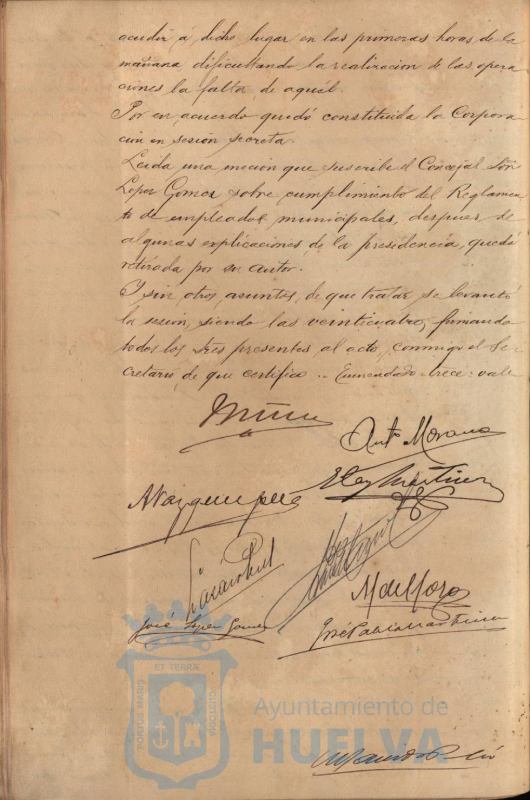 acudir á dicho lugar en las primeras horas de la
mañana dificultando la realizacion de las opera
ciones la falta de aquél.
Por en acuerdo quedó constituida la Corpora
cion en sesión secreta.
Leida una moción que suscribe el Concejal Sr.
Lopez Gomez sobre cumplimiento del Reglamen
to de empleados municipales, despues de
algunas explicaciones de la presidencia, quedó
retirada por su autor.
Y sin otros asuntos de que tratar se levantó
la sesión, siendo las veinticuatro, firmando
todos los Sres presentes al acto, conmigo el Se
cretario, de que certifico .. Enmendado trece: vale
Antº Moreno
Eloy Martinez
A Vazquez
M de Mora
José Lopez Gomez
José Pablo Martinez
ET TERRÆ
PORTUS MARIS
CUSTODIA
Ayuntamiento de
HUELVA